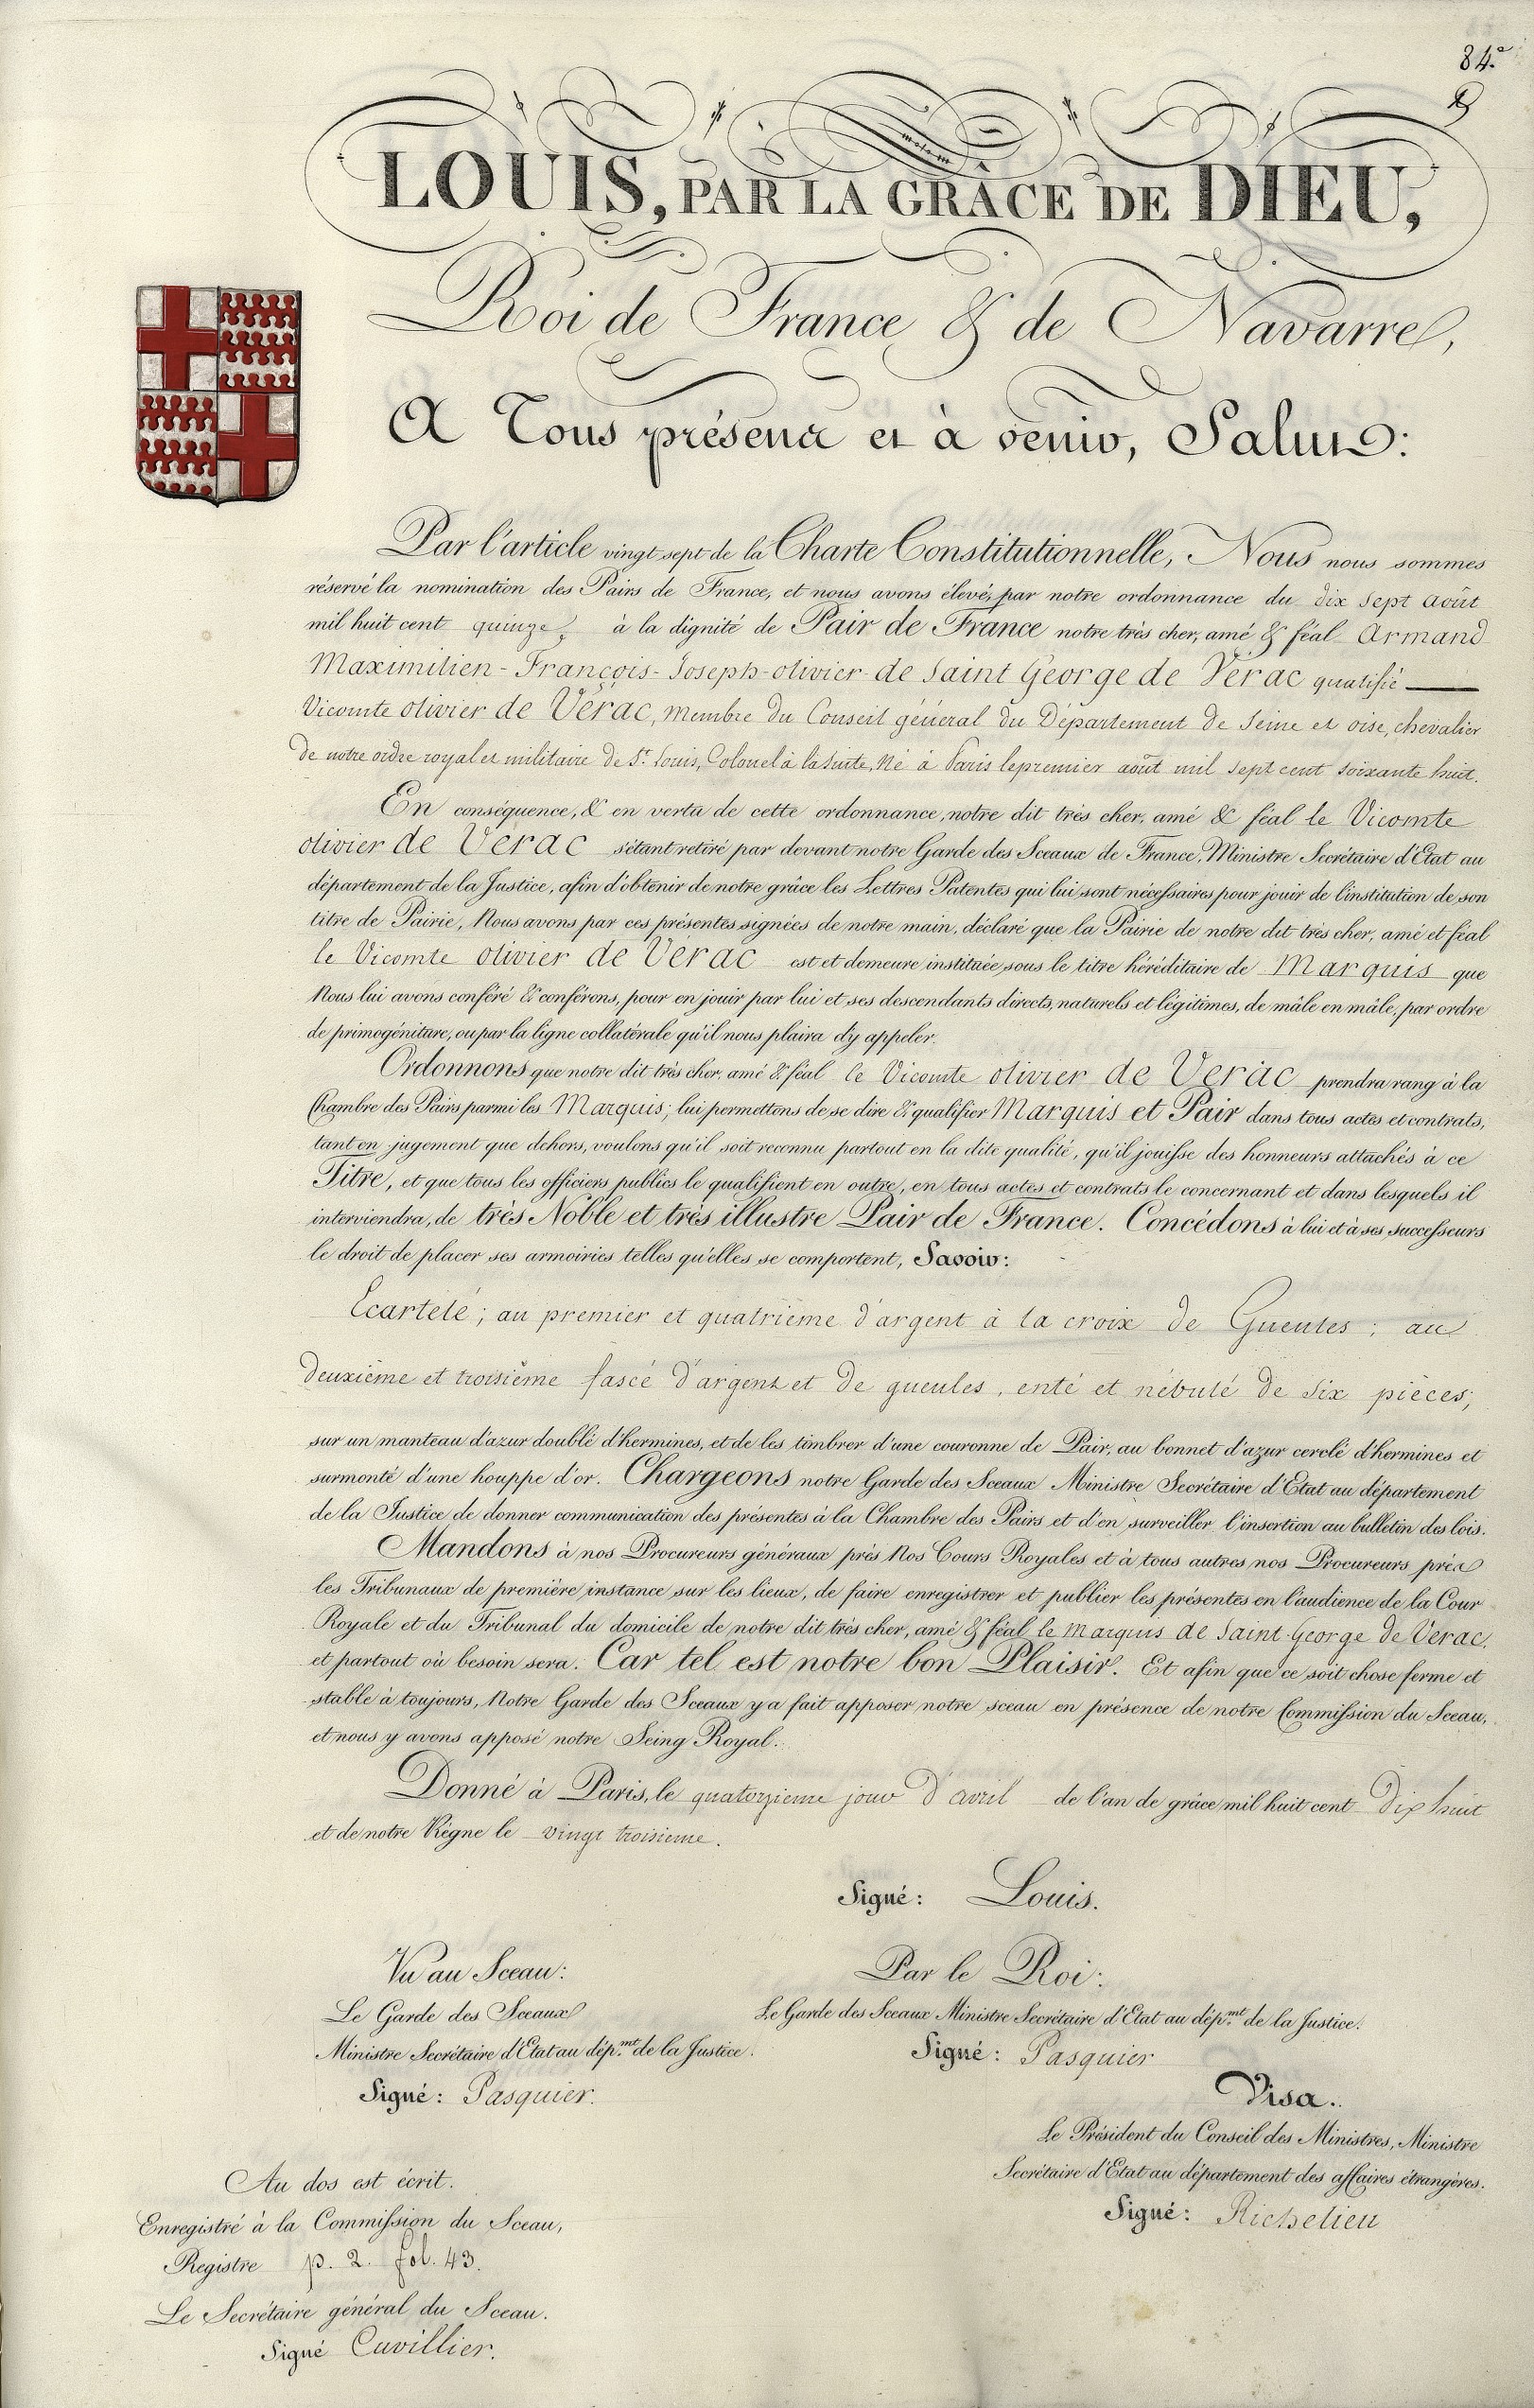 84.e
LOUIS, PAR LA GRÂCE DE DIEU,
Roi de France & de Navarre,
A Tous présens et à venir, Salut:
Par l'article vingt sept de la Charte Constitutionnelle, Nous nous sommes
réservé la nomination des Pairs de France, et nous avons élevé, par notre ordonnance du dix sept août
mil huit cent quinze, à la dignité de Pair de France notre très cher, amé & féal Armand
Maximilien-François-Joseph-olivier de Saint George de Vérac qualifié
Vicomte olivier de Vérac, membre du Conseil général du Département de Seine et oise, chevalier
de notre ordre royal et militaire de St. Louis, Colonel à la suite, Né à Paris le premier août mil sept cent soixante huit.
En conséquence, & en vertu de cette ordonnance, notre dit très cher, amé & féal le Vicomte
olivier de Vérac s'étant retiré par devant notre Garde des Sceaux de France, Ministre Secrétaire d'Etat au
département de la Justice, afin d'obtenir de notre grâce les Lettres Patentes qui lui sont nécessaires pour jouir de l'institution de son
titre de Pairie, Nous avons par ces présentes signées de notre main, déclaré que la Pairie de notre dit très cher, amé et féal
le Vicomte olivier de Vérac est et demeure instituée sous le titre héréditaire de Marquis que
Nous lui avons conféré & conférons, pour en jouir par lui et ses descendants directs, naturels et légitimes, de mâle en mâle, par ordre
de primogéniture, ou par la ligne collatérale qu'il nous plaira d'y appeler.
Ordonnons que notre dit très cher, amé & féal le Vicomte olivier de Vérac prendra rang à la
Chambre des Pairs parmi les Marquis; lui permettons de se dire & qualifier Marquis et Pair dans tous actes et contrats,
tant en jugement que dehors, voulons qu'il soit reconnu partout en la dite qualité, qu'il jouisse des honneurs attachés à ce
Titre, et que tous les officiers publics le qualifient en outre, en tous actes et contrats le concernant et dans lesquels il
interviendra, de très Noble et très illustre Pair de France. Concédons à lui et à ses successeurs
le droit de placer ses armoiries telles qu'elles se comportent, Savoir:
Ecartelé; au premier et quatrième d'argent à la croix de Gueules; au
deuxième et troisième fascé d'argent et de gueules, enté et nébulé de six pièces;
sur un manteau d'azur doublé d'hermines, et de les timbrer d'une couronne de Pair, au bonnet d'azur cerclé d'hermines et
surmonté d'une houppe d'or. Chargeons notre Garde des Sceaux Ministre Secrétaire d'Etat au département
de la Justice de donner communication des présentes à la Chambre des Pairs et d'en surveiller l'insertion au bulletin des lois.
Mandons à nos Procureurs généraux près Nos Cours Royales et à tous autres nos Procureurs près
les Tribunaux de première instance sur les lieux, de faire enregistrer et publier les présentes en l'audience de la Cour
Royale et du Tribunal du domicile de notre dit très cher, amé & féal le marquis de Saint George de Vérac,
et partout où besoin sera. Car tel est notre bon Plaisir. Et afin que ce soit chose ferme et
stable à toujours, Notre Garde des Sceaux y a fait apposer notre sceau en présence de notre Commission du Sceau,
et nous y avons apposé notre Seing Royal.
Donné à Paris, le quatorzieme jour d'avril de l'an de grâce mil huit cent dix huit
et de notre Règne le vingt troisieme.
Signé: Louis.
Vu au Sceau:
Le Garde des Sceaux
Ministre Secrétaire d'Etat au dép.mt de la Justice.
Signé: Pasquier.
Par le Roi:
Le Garde des Sceaux Ministre Secrétaire d'Etat au dép.mt de la Justice.
Signé: Pasquier
Visa.
Le Président du Conseil des Ministres, Ministre
Secrétaire d'Etat au département des affaires étrangères.
Signé: Richelieu
Au dos est écrit.
Enregistré à la Commission du Sceau,
Registre p. 2. fol. 43.
Le Secrétaire général du Sceau.
Signé Cuvillier.